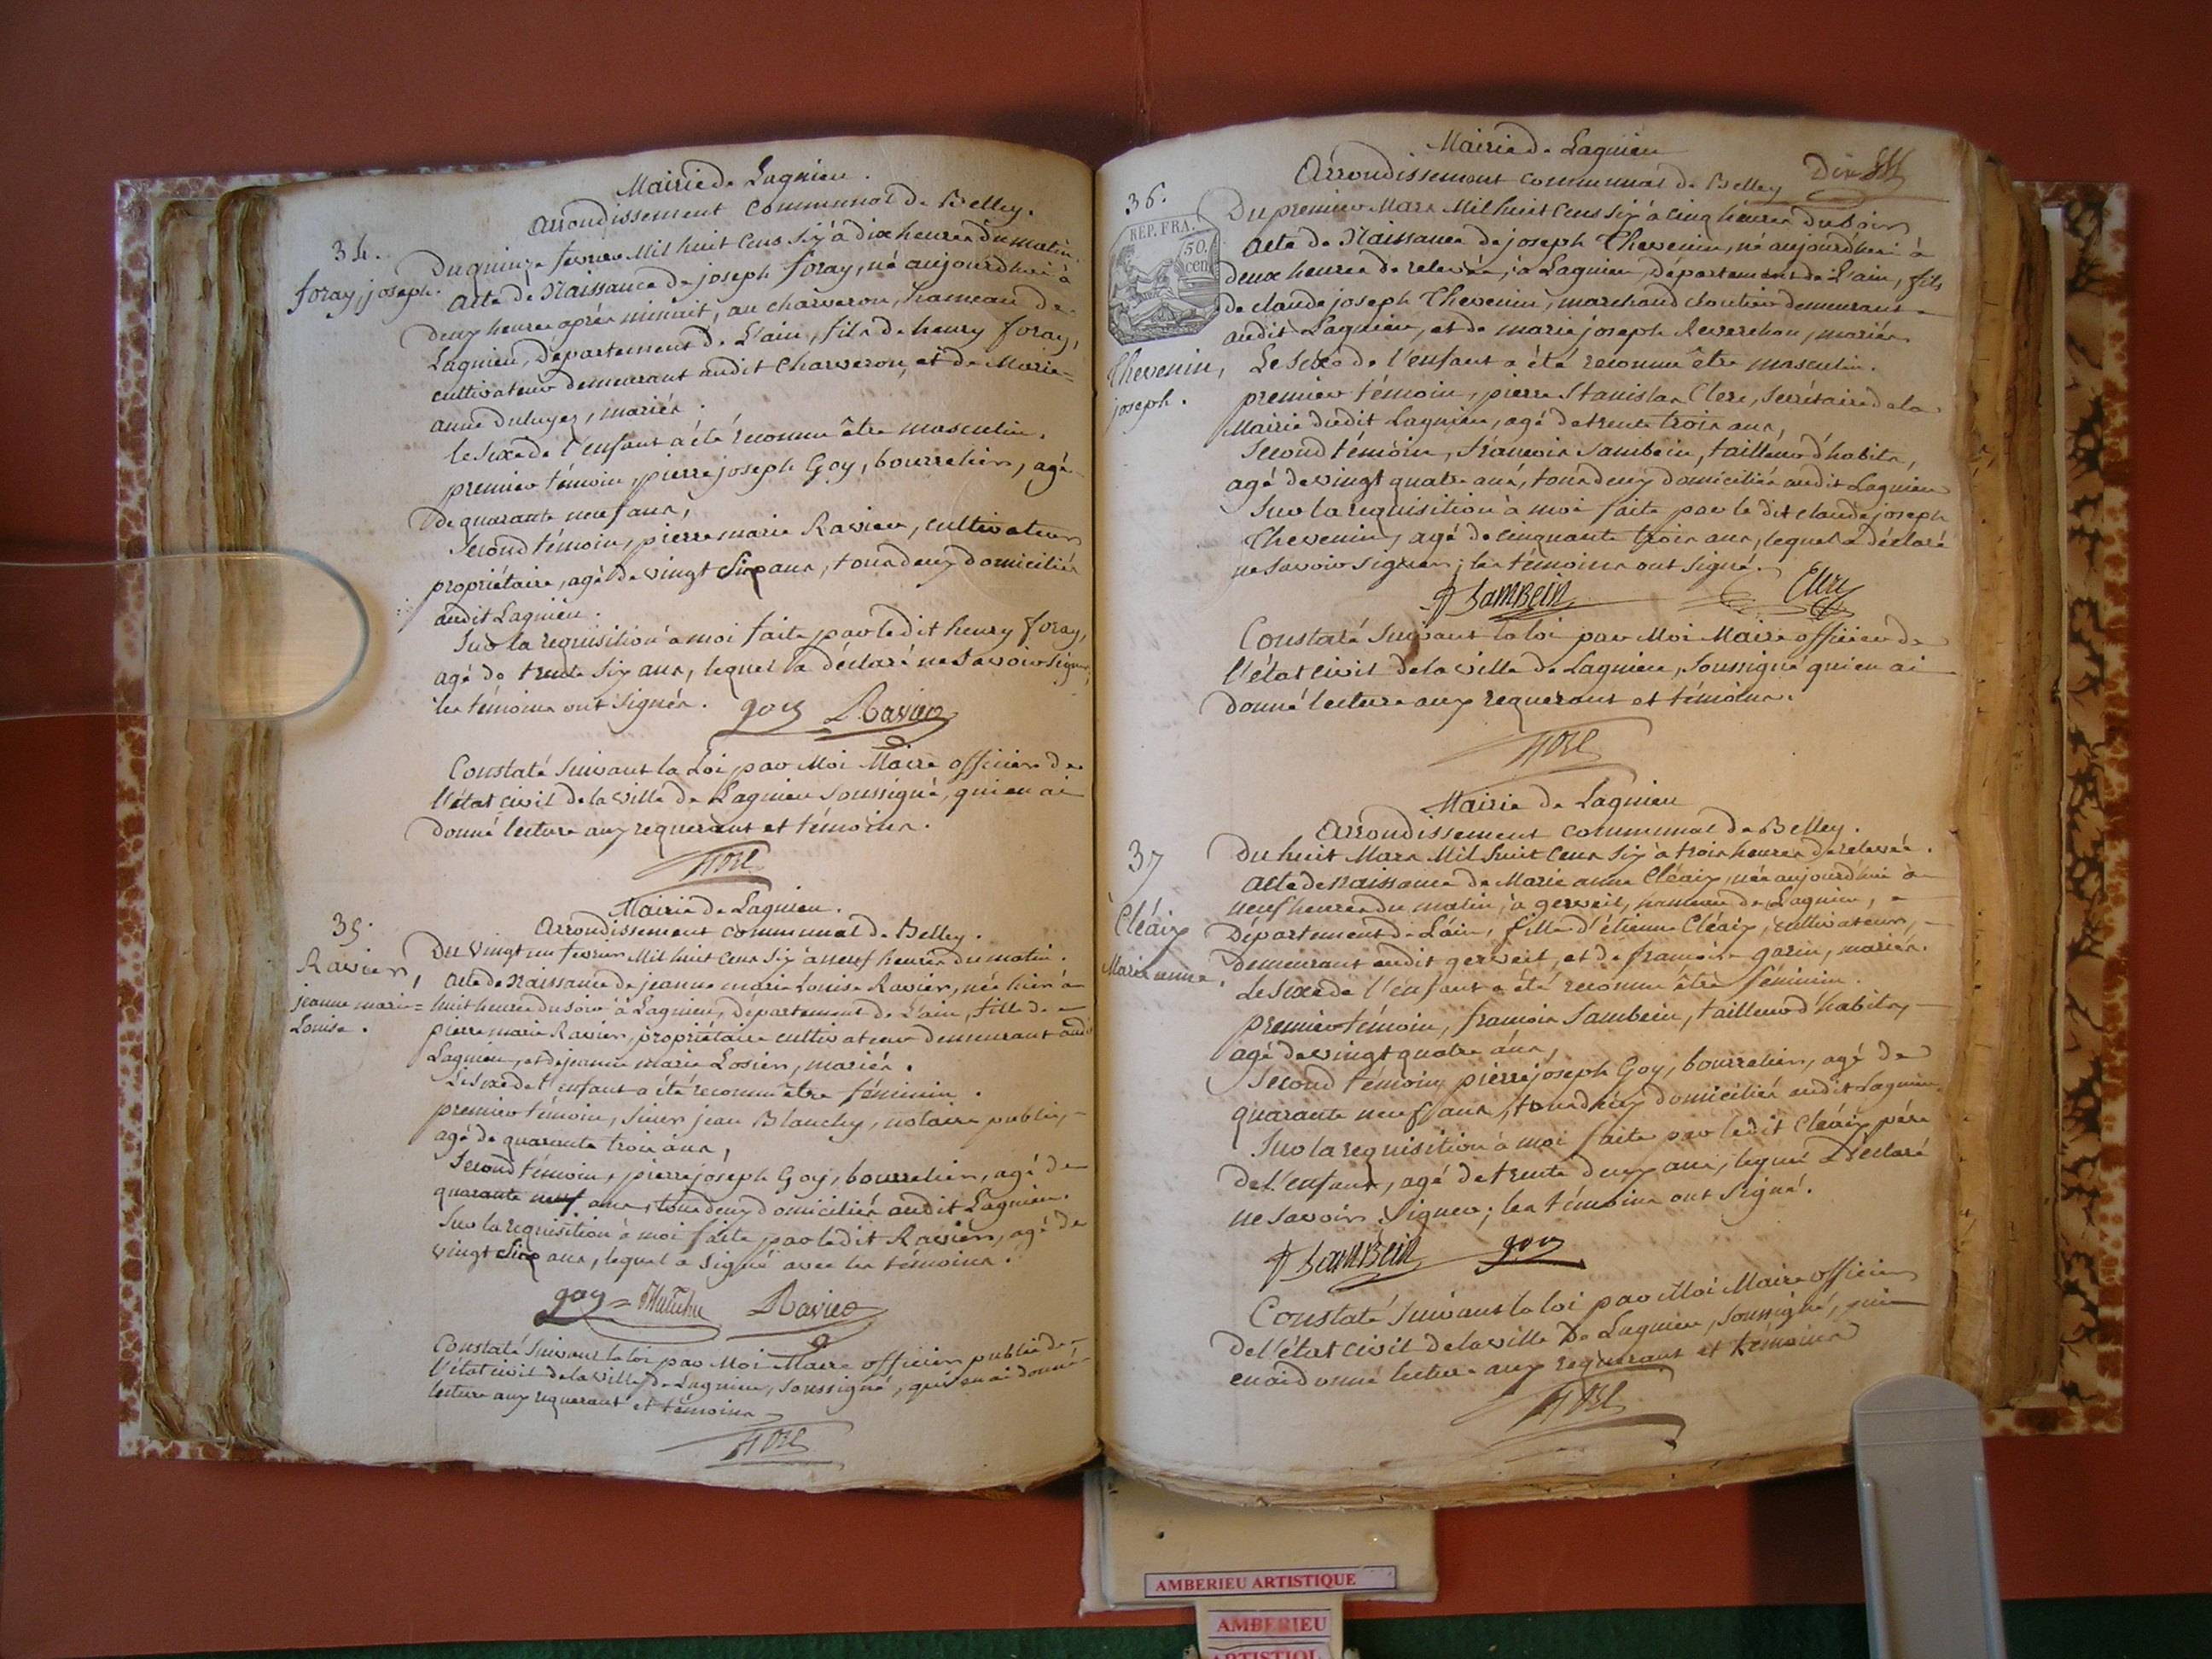 Mairie de Lagnieu.
Arrondissement Communal de Belley.
34.
foray, joseph.
Du quinze fevrier Mil huit Cens Six à dix heures du matin.
Acte de Naissance de joseph foray, né aujourd'hui à
deux heures après minuit, au charveron, hameau de
Lagnieu, Département de L'ain, fils de henry foray,
cultivateur demeurant audit Charveron, et de Marie=
anne, mariés.
le Sexe de l'enfant a été reconnu être masculin.
premier témoin, pierre joseph Goy, bourrelier, agé
de quarante neuf ans,
Second témoin, pierre marie Ravier, cultivateur
propriétaire, agé de vingt Six ans, tous deux domiciliés
audit Lagnieu.
Sur la requisition à moi faite par ledit henry foray,
agé de trente Six ans, lequel a déclaré ne Savoir Signer;
les témoins ont Signés. goy Ravier
Constaté Suivant la Loi par Moi Maire officier de
l'état civil de la Ville de Lagnieu Soussigné, qui en ai
donné lecture aux requerant et témoins.
Mairie de Lagnieu.
Arrondissement Communal de Belley.
35.
Ravier,
jeanne marie=
Louise.
Du Vingt un fevrier Mil huit Cens Six à neuf heures du matin.
Acte de Naissance de jeanne marie Louise Ravier, née hier à
huit heures du soir à Lagnieu, Département de L'ain, fille de
pierre marie Ravier, propriétaire cultivateur demeurant audit
Lagnieu, et de jeanne marie Losier, mariés.
Le Sexe de l'enfant a été reconnu être féminin.
premier témoin, Sieur jean Blanchy, notaire public,
agé de quarante trois ans,
Second témoin, pierre joseph Goy, bourrelier, agé de
quarante neuf ans, tous deux domiciliés audit Lagnieu.
Sur la requisition à moi faite par ledit Ravier, agé de
vingt Six ans, lequel a Signé avec les témoins.
goy Ravier
Constaté Suivant la loi par Moi Maire officier public de
l'état civil de la Ville de Lagnieu, Soussigné, qui en ai donné
lecture aux requerant et témoins
Mairie de Lagnieu
Arrondissement Communal de Belley
36.
REP. FRA.
50.
cen
Thevenin,
joseph.
Du premier Mars Mil huit Cens Six à cinq heures du Soir
Acte de Naissance de joseph Thevenin, né aujourd'hui à
deux heures de relevée, à Lagnieu, Département de L'ain, fils
de claude joseph Thevenin, marchand demeurant
audit Lagnieu, et de marie joseph Reverchon, mariés
Le Sexe de l'enfant a été reconnu être masculin.
premier témoin, pierre Stanislas Clerc, Secrétaire de la
Mairie dudit Lagnieu, agé de trente trois ans,
Second témoin, françois Sambein, tailleur d'habits,
agé de vingt quatre ans, tous deux domiciliés audit Lagnieu
Sur la requisition à moi faite par le dit claude joseph
Thevenin, agé de cinquante trois ans, lequel a déclaré
ne Savoir Signer; les témoins ont Signé.
f SamBein Clerc
Constaté Suivant la loi par Moi Maire officier de
l'état civil de la Ville de Lagnieu, Soussigné qui en ai
donné lecture aux requerant et témoins.
Mairie de Lagnieu
Arrondissement Communal de Belley.
37
Cléaix
Marie anne.
Du huit Mars Mil huit Cens Six à trois heures de relevée.
Acte de Naissance de Marie anne Cléaix, née aujourd'hui à
neuf heures du matin, à gerveit, hameau de Lagnieu,
Département de L'ain, fille d'étienne Cléaix, cultivateur,
demeurant audit gerveit, et de françoise garin, mariés.
Le Sexe de l'enfant a été reconnu être féminin.
Premier témoin, françois Sambein, tailleur d'habits,
agé de vingt quatre ans,
Second témoin, pierre joseph Goy, bourrelier, agé de
quarante neuf ans, tous deux domiciliés audit Lagnieu.
Sur la requisition à moi faite par ledit Cléaix père
de l'enfant, agé de trente deux ans, lequel a déclaré
ne Savoir Signer; les témoins ont Signé.
f SamBein goy
Constaté Suivant la loi par Moi Maire officier
de l'état civil de la Ville de Lagnieu, Soussigné, qui
en ai donné lecture aux requerant et témoins
AMBERIEU ARTISTIQUE
AMBERIEU